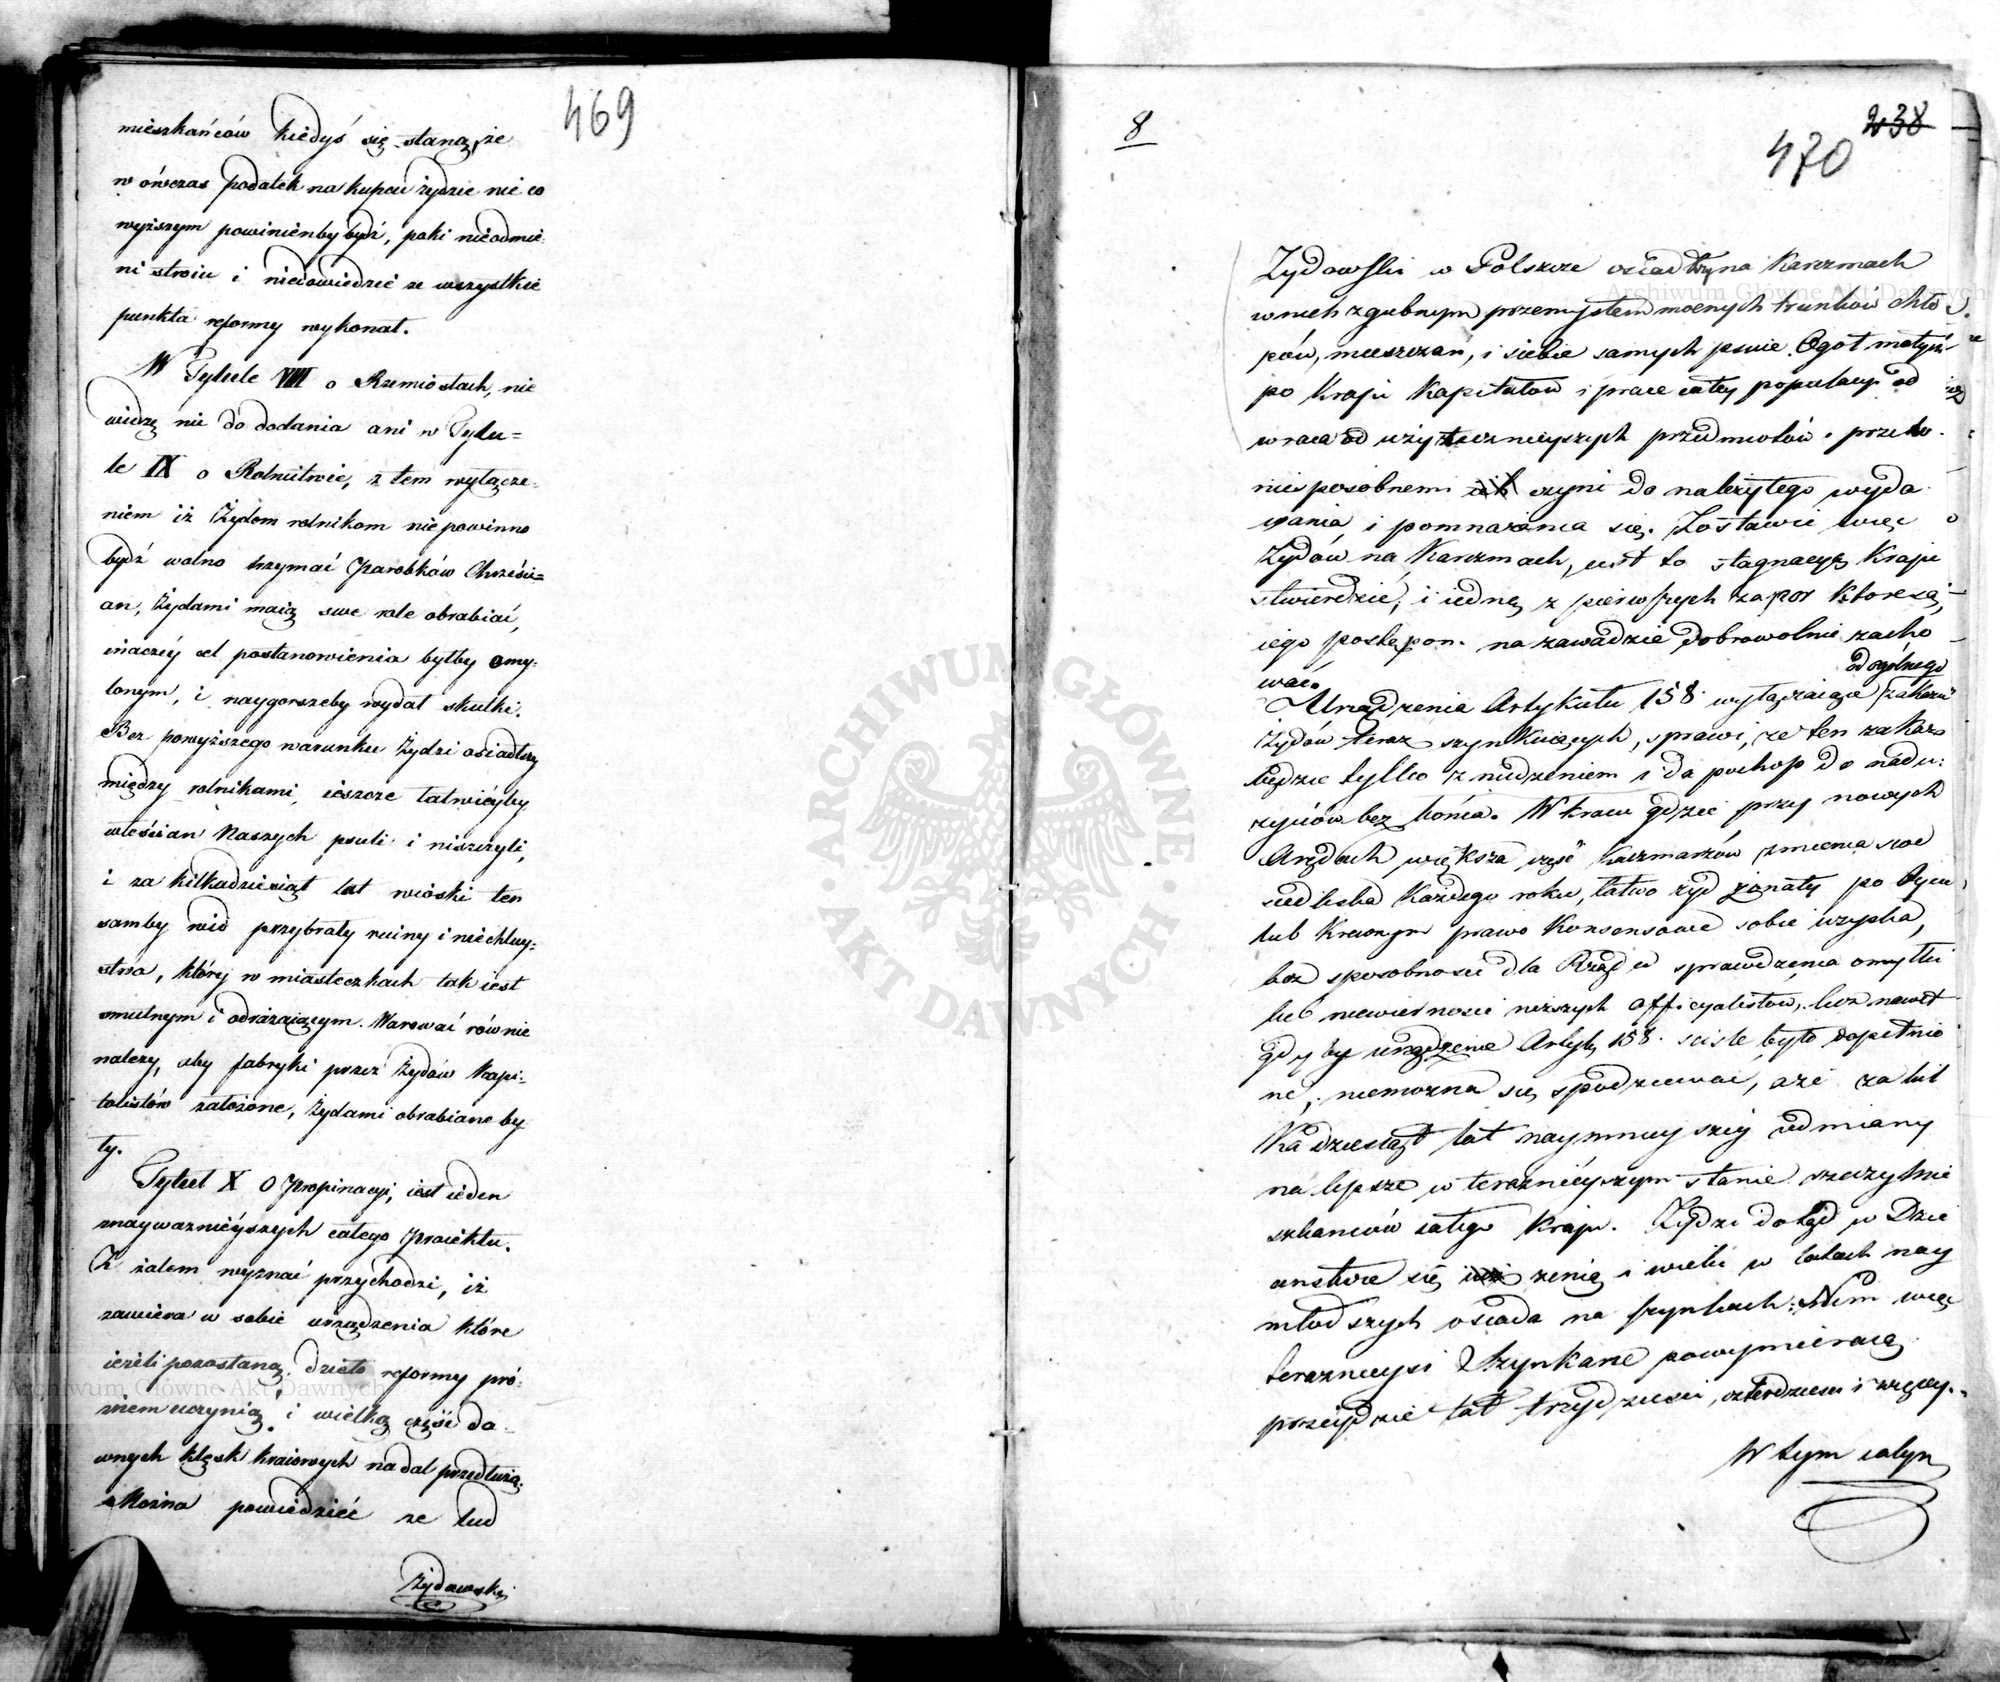 469
mieszkańców kiedyś się staną, że
w ówczas podatek na kupcu żydzie nie co
wyższym powinienby bydź, poki nieodmie:
ni stroiu i niedowiedzie że wszystkie
punkta reformy wykonał.
W Tytule VIII o Rzemiosłach, nie
widzę nic do dodania ani w Tytu=
le IX o Rolnictwie, z tem wyłącze-
niem iż Żydom rolnikom niepowinno
bydź wolno trzymać Parobków Chrześci=
an, Żydami maią swe role obrabiać,
inaczéy cel postanowienia byłby omy:
lonym, i naygorszeby wydał skutki.
Bez powyższego warunku Żydzi osiadłszy
między rolnikami, ieszcze łatwiéyby
włościan Naszych psuli i niszczyli,
i za kilkadziesiąt lat wioski ten
samby wid przybrały ruiny i niechluy-
stwa, który w miasteczkach tak iest
smutnym i odrażaiącym. Warować równie
należy, aby fabryki przez Żydów Kapi:
talistów założone, Żydami obrabiane by
ły.
Tytuł X O Propinacyi, iest ieden
naywaznieyszych całego Proiektu.
Z żalem wyznać przychodzi, iż
zawiera w sobie urządzenia które
ieżeli pozostaną, dzieło reformy pró:
żnem uczynią, i wielką część da-
wnych klęsk kraiowych nadal przedłużą.
Można powiedzieć że lud
Żydowski
8
238
470
Żydowski w Polszcze osiadłszy na Karczmach
w nich zgubnym przemysłem mocnych trunków chło
pów, mieszczan, i siebie samych psuie. Ogół małych
po Kraju Kapitałów i prace całey populacyi od
wraca od użyteczneyszych przedmiotów i przeto
niesposobnemi ich czyni do należytego wyda
wania i pomnażania się. Zostawić więc
Żydów na Karczmach, iest to stagnacyą Kraju
stwierdzić, i iedną z pierwszych zapor które są
iego postępom na zawadzie dobrowolnie zacho
wać.
od ogólnego
Urządzenia Artykułu 158 wyłączaiące zakazu
Żydów teraz szynkuiących, sprawi, że ten zakaz
będzie tylko złudzeniem i da pochop do nadu:
życiów bez końca. W kraiu gdzie przy nowych
Arędach większa część Karczmarzów zmienia swe
siedliska Każdego roku, łatwo żyd żonaty po Oycu
lub Krewnym prawo Konsensowe sobie uzyska,
bez sposobności dla Rządu sprawdzenia omyłki
lub niewierności niższych Officyalistów, lecz nawet
gdyby urządzenie Artykł 158. ściśle było dopełnio
ne, niemożna się spodziewać, aże za kil
Kadziesiąt lat naymnieyszéy odmiany
na lepsze w teraznieyszym stanie szczególnie
szkańców całego Kraju. Żydzi dotąd w Dzie
cinstwie się żenią i wielu w latach nay
młodszych osiada na szynkach: Nim więc
teraznieysi Szynkarze powymieraią
przeydzie lat trzydzieści, czterdzieści i więcéy.
W tym całym